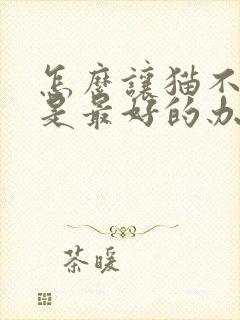 怎麼讓猫不
是最好的办
茶暖